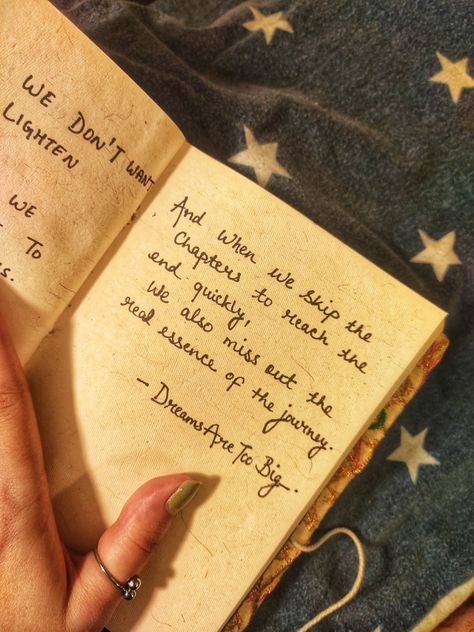 WE DON'T WANT
LIGHTEN
WE
TO
And when we skip the
Chapters to reach the
end quickly,
We also miss out the
real essence of the journey.
– DreamsAreTooBig.